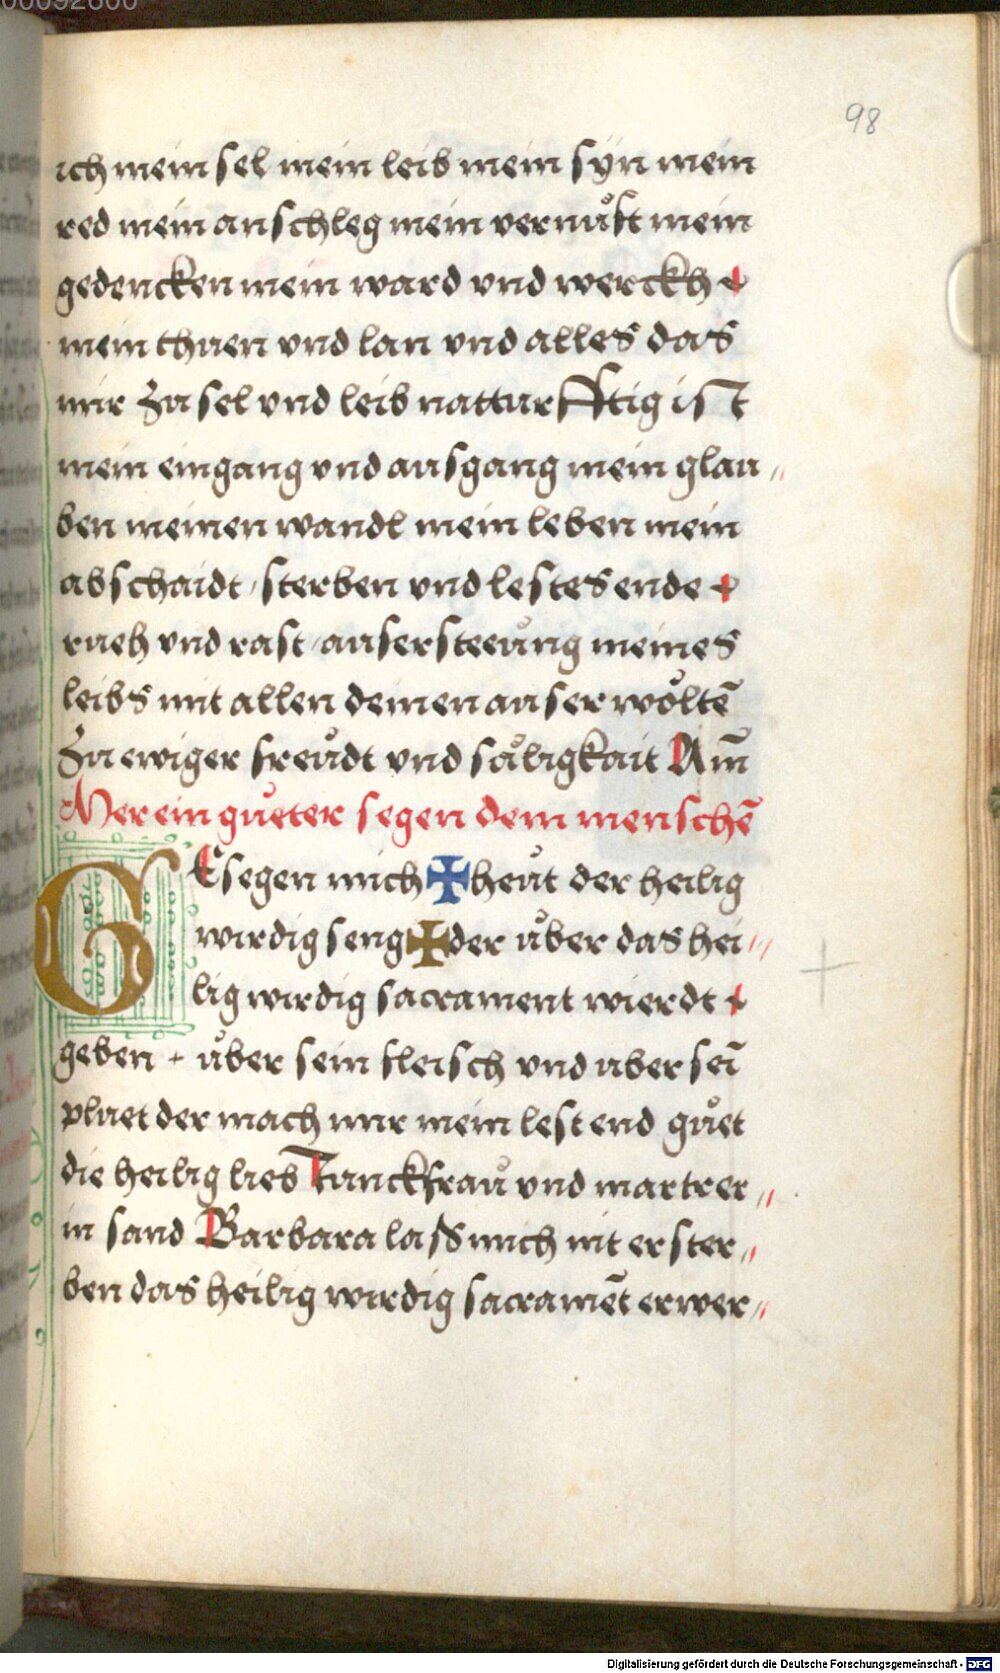 00092600
98
ich mein sel mein leib mein syn mein
red mein anschleg mein vernuͦft mein
gedencken mein ward vnd werckh
mein thuen vnd lan vnd alles das
mir zu sel vnd leib notturfftig ist
mein eingang vnd ausgang mein glau〃
ben meinen wandl mein leben mein
abschaidt / sterben vnd lestes ende
rueh vnd rast / aufersteeung meines
leibs mit allen deinen auserwoͤltē
Zu ewiger freuͦdt vnd saͤligkait Am̄
Mer ein guͤeter segen dem menschē
GEsegen mich ✠ heuͦt der heilig
wirdig seng ✠ der uͤber das hei〃
lig wirdig sacrament wierdt
geben + uͤber sein fleisch vnd uber sei̅
pluet der mach mir mein lest end guͤet
die heilig lieb Junckfrau vnd martrer〃
in sand Barbara laß mich nit erster〃
ben das heilig wirdig sacramēt erwer〃
Digitalisierung gefördert durch die Deutsche Forschungsgemeinschaft - DFG